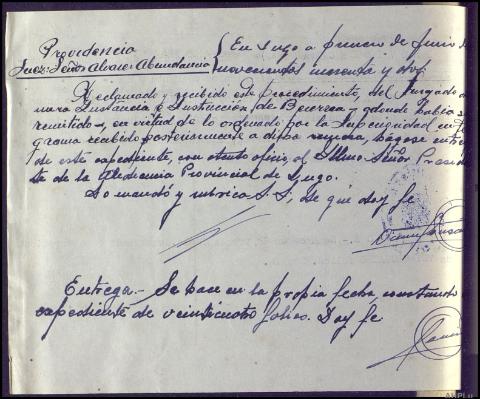 Providencia
Juez: Señor Alvarez Abundancia
En Lugo a primero de Junio de
novecientos
Reclamado y recibido este procedimiento, del Juzgado de
mera Instancia é Instrucción de Becerreá, adonde había s
remitido, en virtud de lo ordenado por la Superioridad en te
grama recibido posteriormente a dicha remesa, hágase entre
de este expediente, con atento oficio, al Illmo Señor Presid
te de la Audiencia Provincial de Lugo.
Lo mandó y rubrica S.S., de que doy fe
Entrega.- Se hace en la propia fecha, constando
expediente de veinticuatro folios. Doy fe